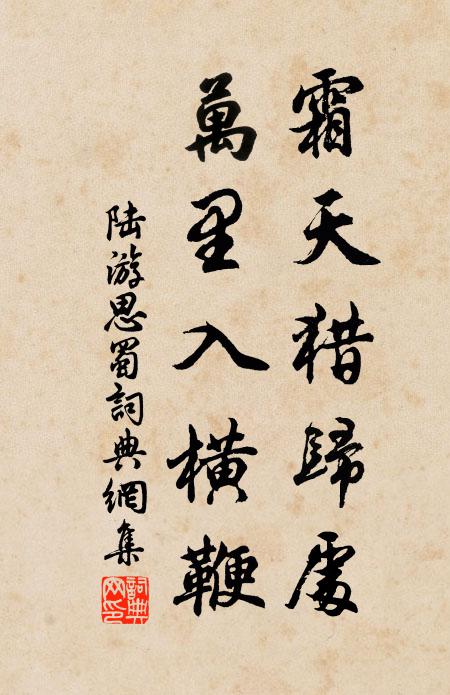 霜天猎歸處
萬里入橫鞭
陆游思蜀詞典網集
詞典网印